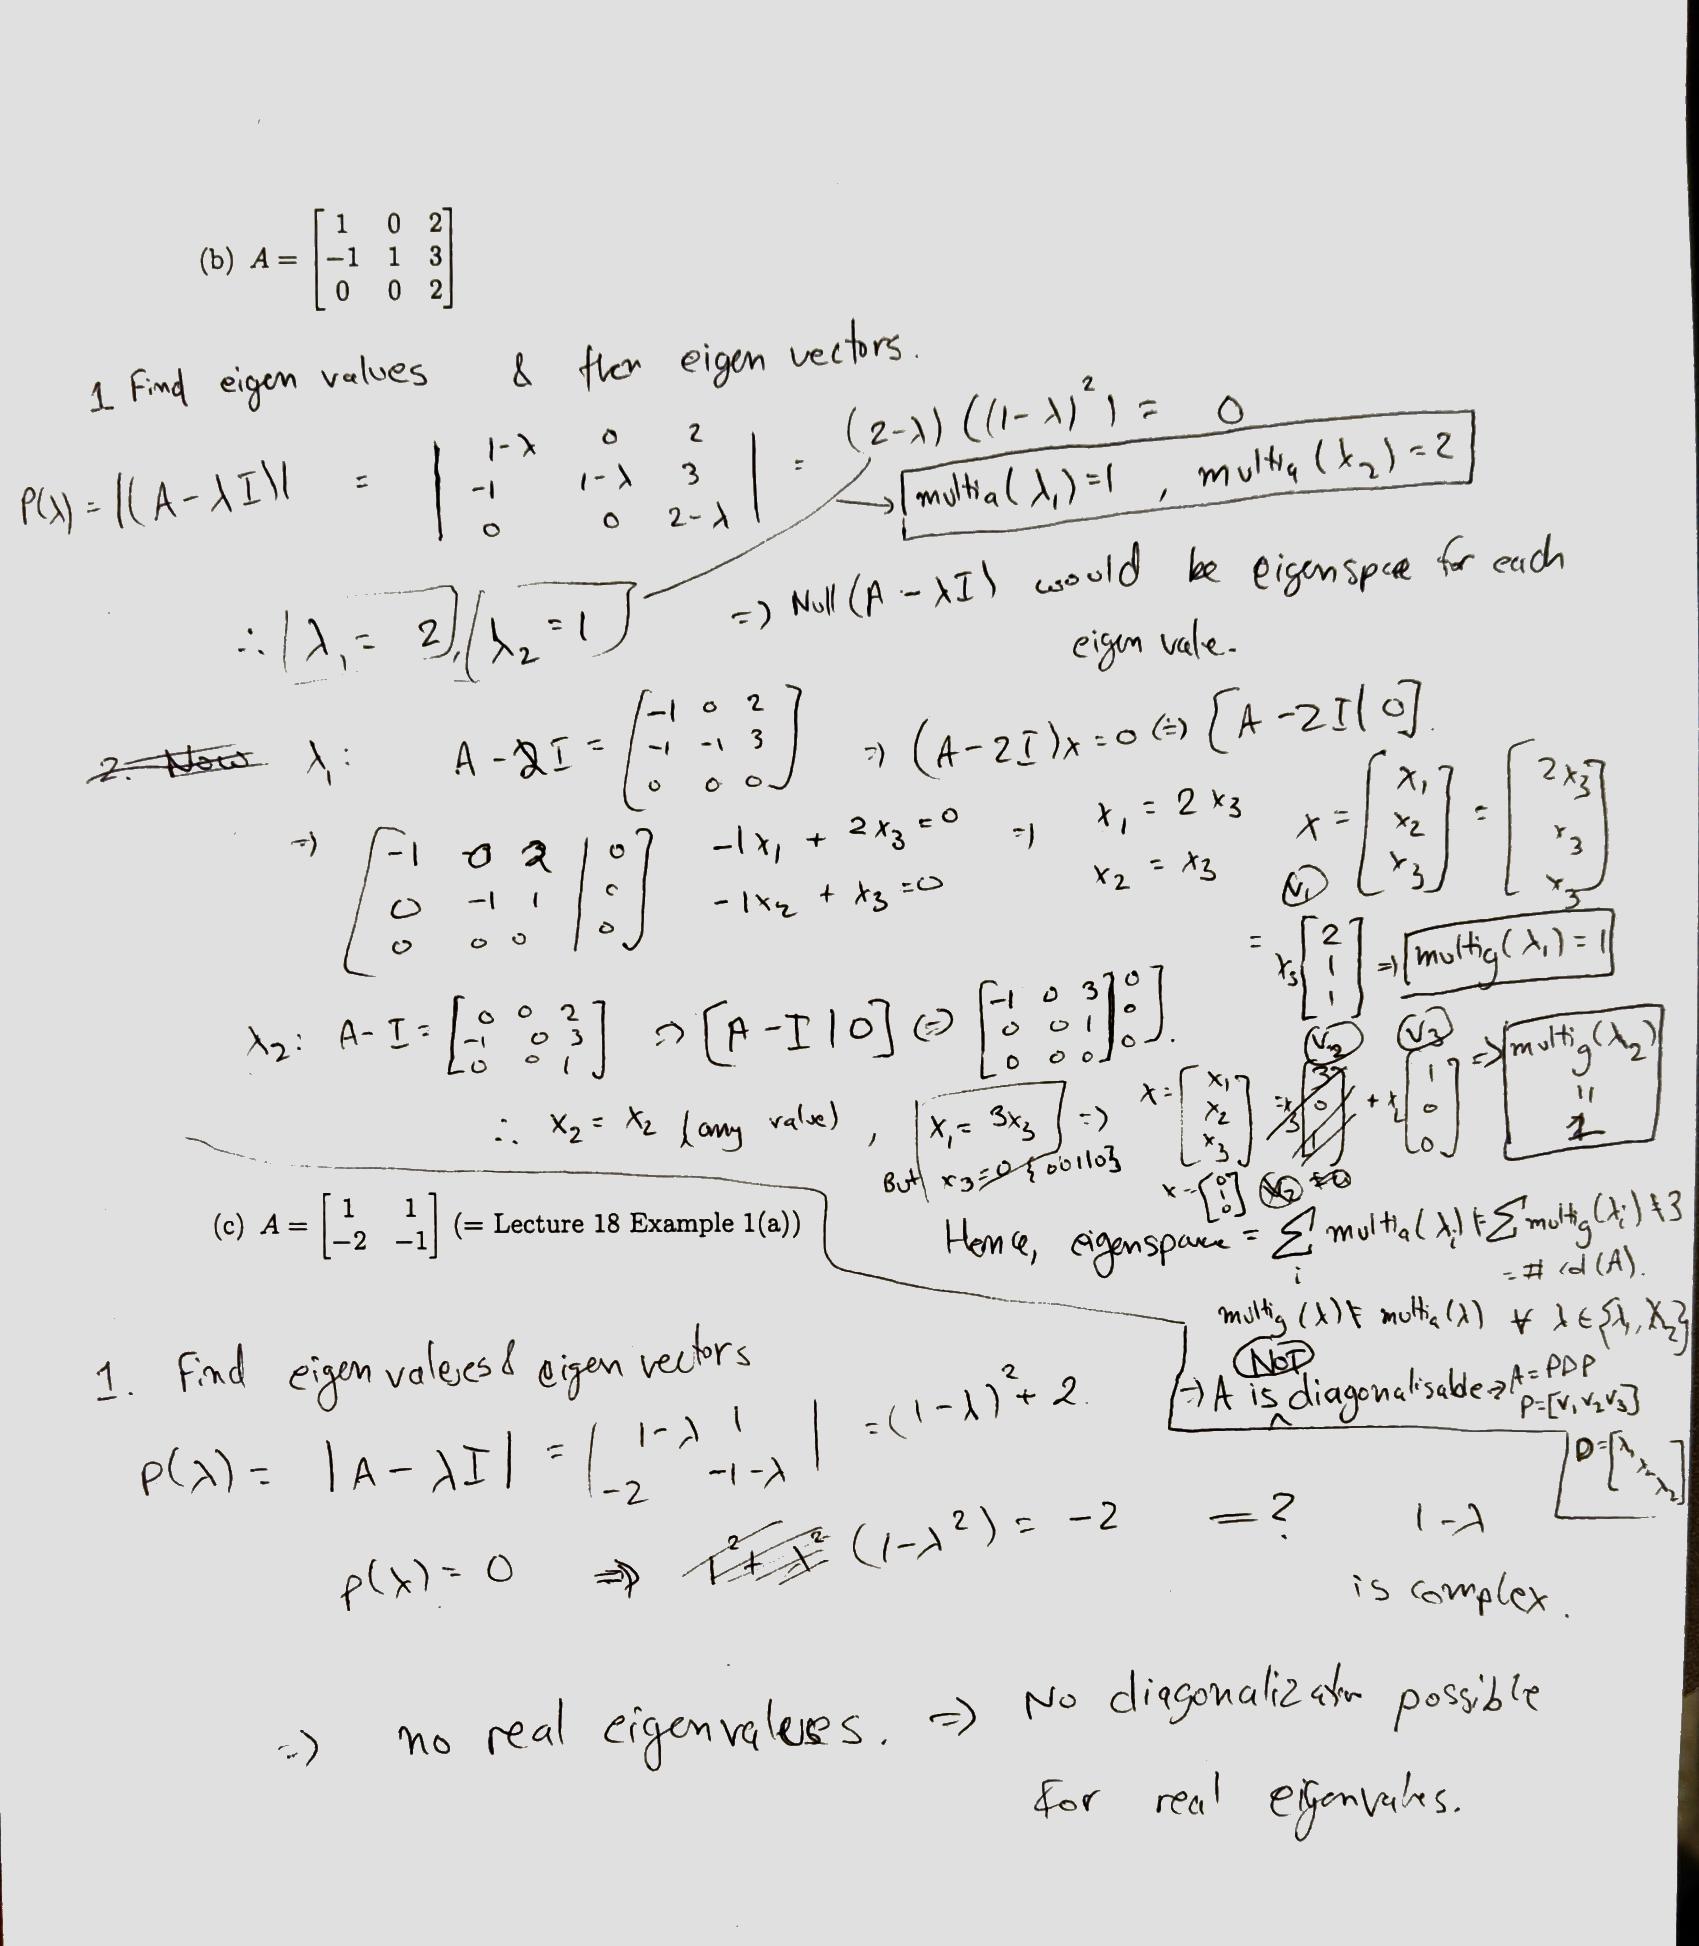 (b) A = [1 0 2; -1 1 3; 0 0 2]
1 Find eigen values & then eigen vectors.
P(λ) = |(A - λI)| = |1-λ 0 2; -1 1-λ 3; 0 0 2-λ| = (2-λ)((1-λ)²) = 0
→ multia(λ₁)=1, multia(λ₂)=2
∴ λ₁ = 2, λ₂ = 1 => Null(A - λI) would be eigenspace for each
eigen value.
λ₁: A - 2I = [-1 0 2; -1 -1 3; 0 0 0] => (A-2I)x = 0 <=> [A-2I|0].
=> [-1 0 2 | 0; 0 -1 1 | 0; 0 0 0 | 0] -1x₁ + 2x₃ = 0 => x₁ = 2x₃ x = [x₁; x₂; x₃] = [2x₃; x₃; x₃]
-1x₂ + x₃ = 0 x₂ = x₃ V₁
= x₃ [2; 1; 1] => multig(λ₁) = 1
λ₂: A - I = [0 0 2; -1 0 3; 0 0 1] => [A-I|0] <=> [-1 0 3 | 0; 0 0 1 | 0; 0 0 0 | 0]. V₂ V₃
∴ x₂ = x₂ (any value), x₁ = 3x₃ => x = [x₁; x₂; x₃] + x₂ [1; 0; 0] => multig(λ₂) = 1
But x₃ = 0 {001|0} x = [0; 1; 0]
(c) A = [1 1; -2 -1] (= Lecture 18 Example 1(a))
Hence, eigenspace = Σᵢ multia(λᵢ) ≠ Σ multig(λᵢ) ≠ 3
= # col(A).
multig(λ) ≠ multia(λ) ∀ λ ∈ {λ₁, λ₂}
=> A is NOT diagonalisable => A = PDP
P = [V₁ V₂ V₃]
D = [λ₁ λ₂ λ₂]
1. Find eigen values & eigen vectors
P(λ) = |A - λI| = |1-λ 1; -2 -1-λ| = (1-λ)² + 2.
P(λ) = 0 => (1-λ²) = -2 = ? 1-λ
is complex.
=> no real eigenvalues. => No diagonalization possible
for real eigenvalues.